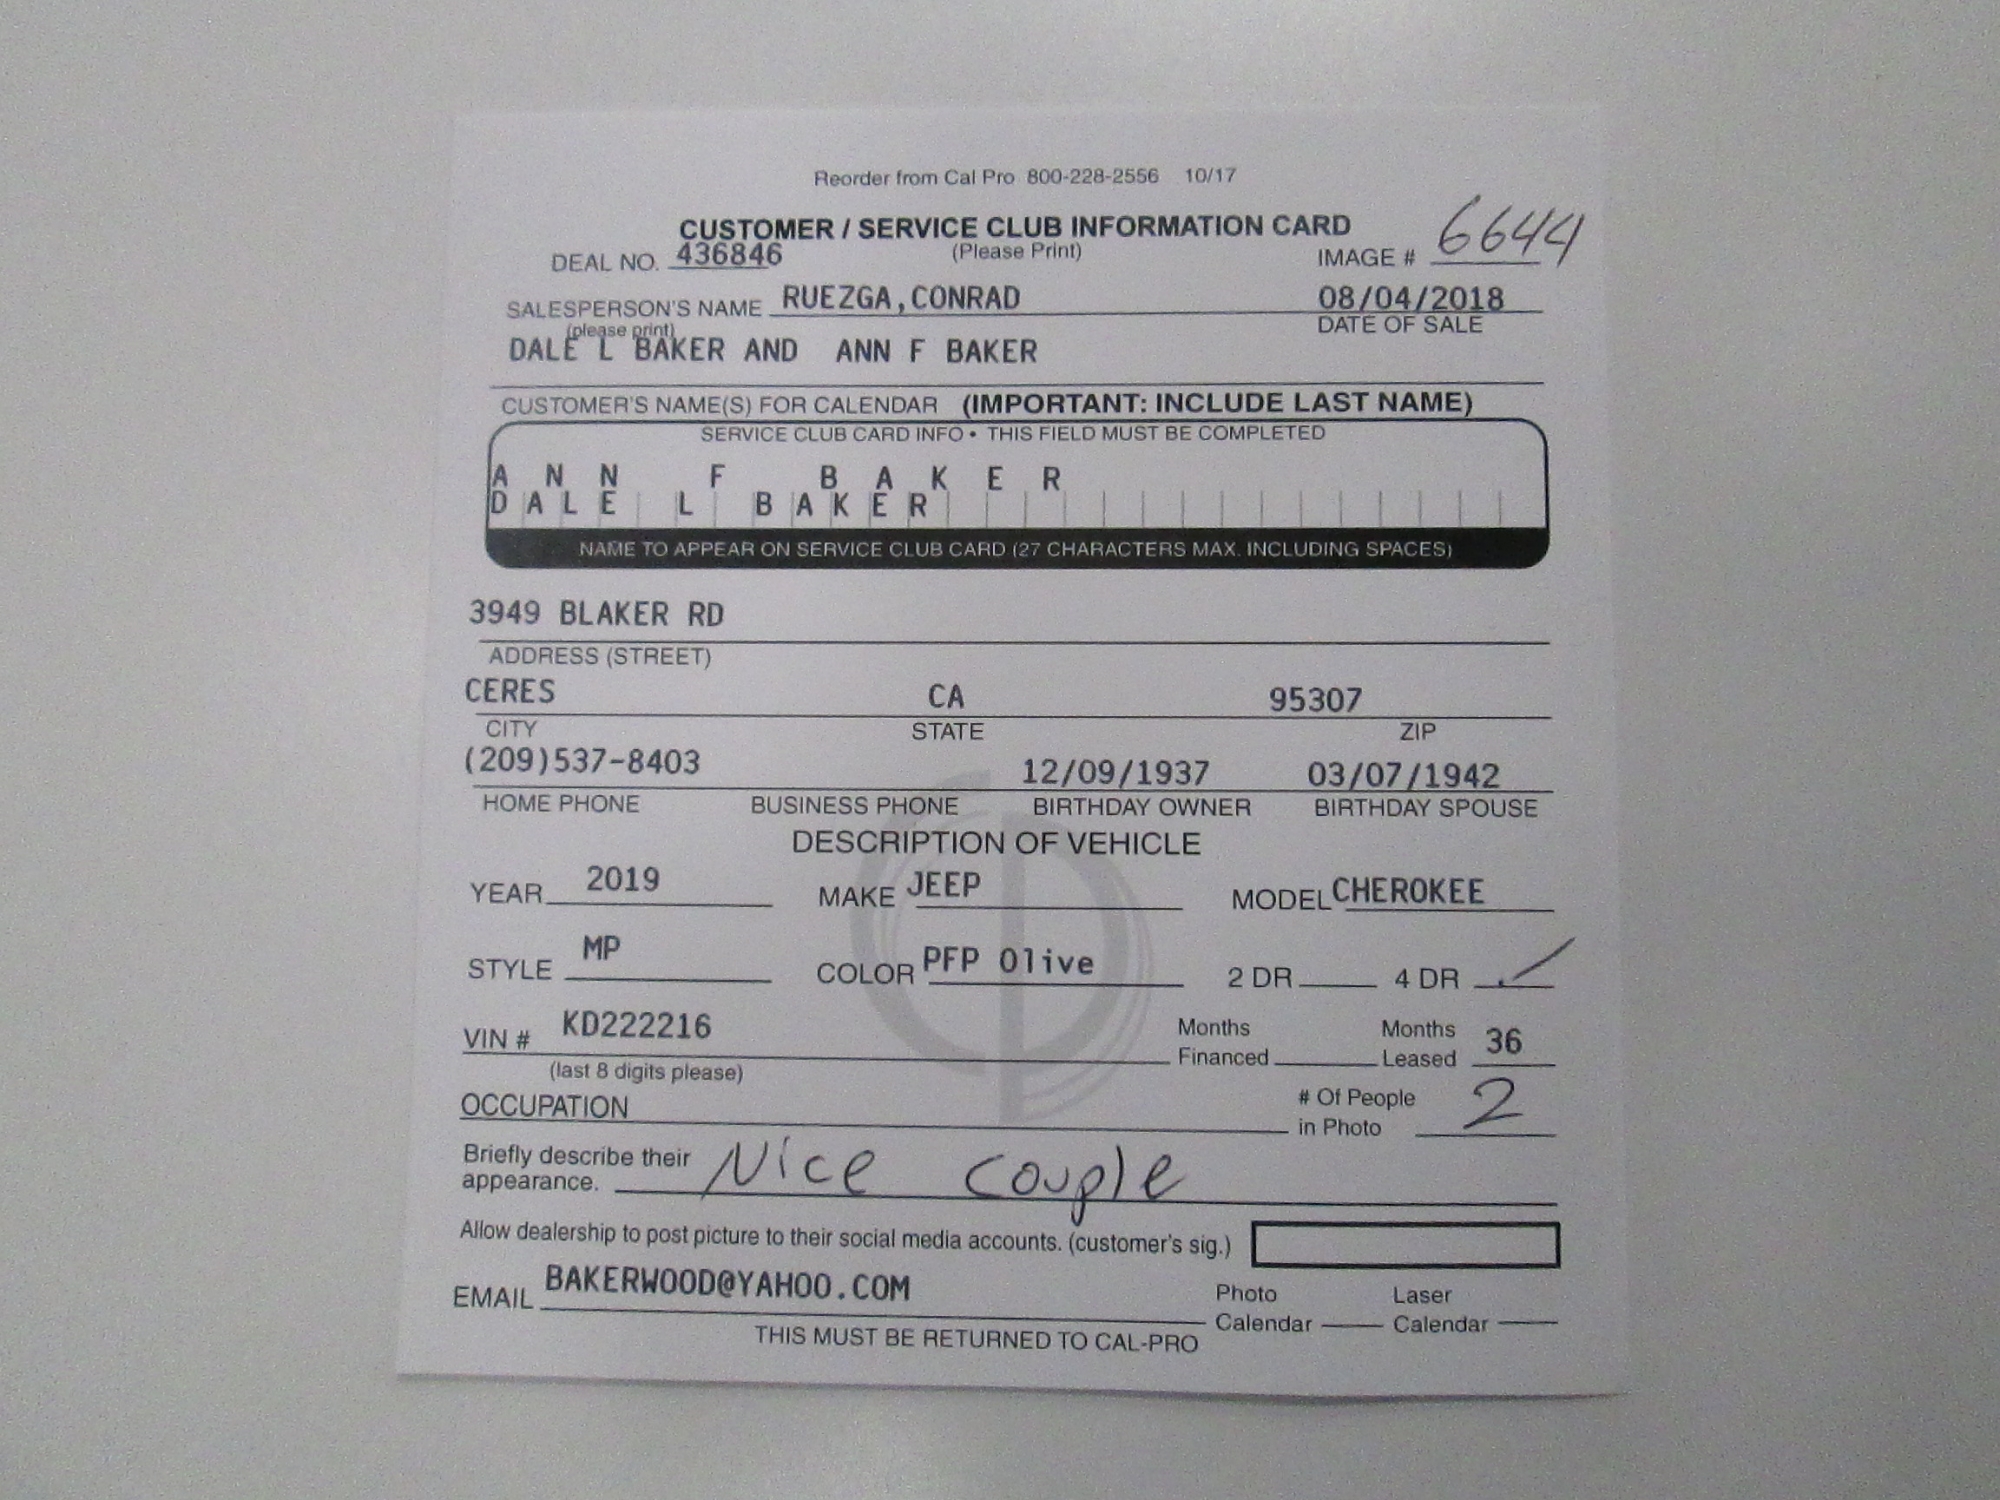 Reorder from Cal Pro 800-228-2556 10/17
CUSTOMER / SERVICE CLUB INFORMATION CARD
DEAL NO. 436846 (Please Print) IMAGE # 6644
SALESPERSON'S NAME RUEZGA,CONRAD 08/04/2018
(please print) DATE OF SALE
DALE L BAKER AND ANN F BAKER
CUSTOMER'S NAME(S) FOR CALENDAR (IMPORTANT: INCLUDE LAST NAME)
SERVICE CLUB CARD INFO • THIS FIELD MUST BE COMPLETED
ANN F BAKER
DALE L BAKER
NAME TO APPEAR ON SERVICE CLUB CARD (27 CHARACTERS MAX. INCLUDING SPACES)
3949 BLAKER RD
ADDRESS (STREET)
CERES CA 95307
CITY STATE ZIP
(209)537-8403 12/09/1937 03/07/1942
HOME PHONE BUSINESS PHONE BIRTHDAY OWNER BIRTHDAY SPOUSE
DESCRIPTION OF VEHICLE
YEAR 2019 MAKE JEEP MODEL CHEROKEE
STYLE MP COLOR PFP Olive 2 DR 4 DR ✓
VIN # KD222216 Months Financed Months Leased 36
(last 8 digits please)
OCCUPATION # Of People in Photo 2
Briefly describe their appearance. Nice couple
Allow dealership to post picture to their social media accounts. (customer's sig.)
EMAIL BAKERWOOD@YAHOO.COM Photo Calendar Laser Calendar
THIS MUST BE RETURNED TO CAL-PRO